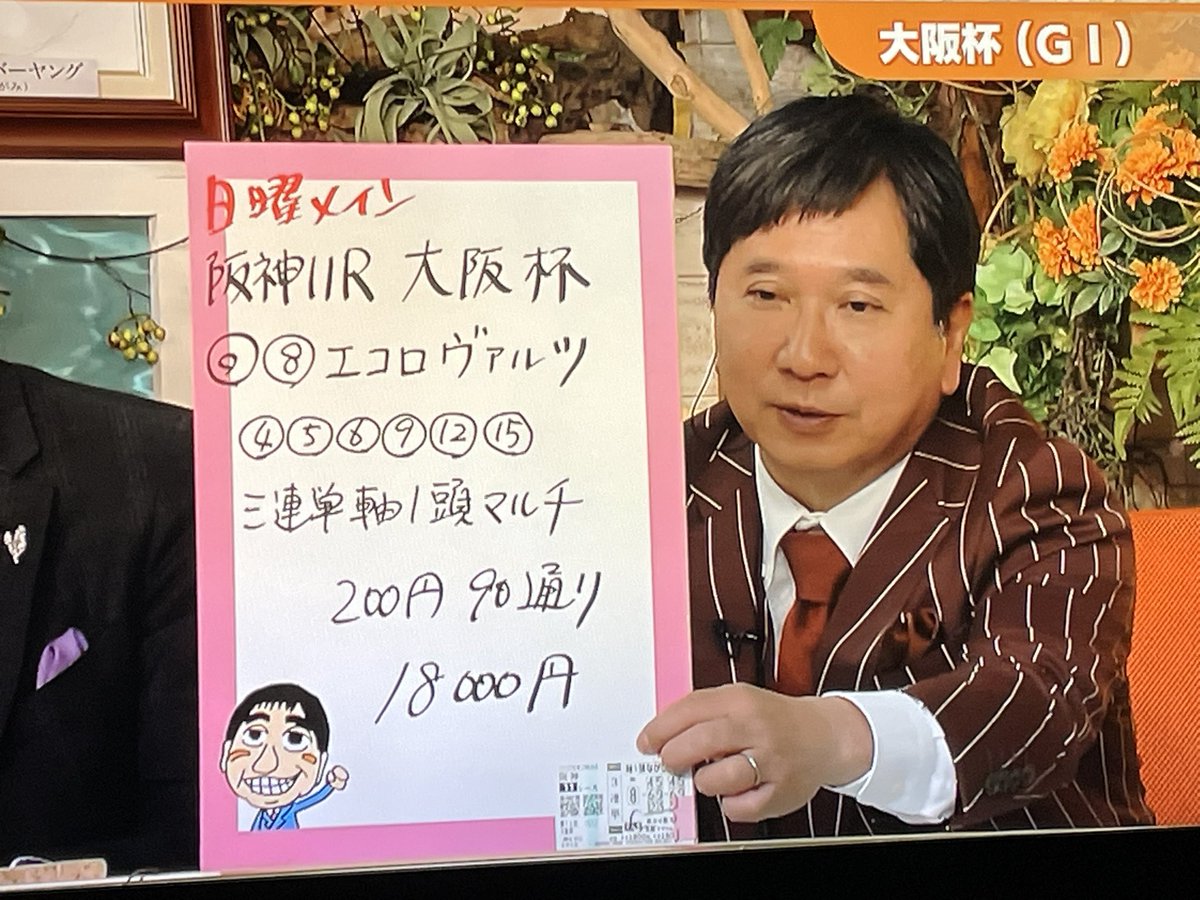 大阪杯（GⅠ）
ベーヤング
日曜メイン
阪神11R 大阪杯
◎⑧エコロヴァルツ
④⑤⑥⑨⑫⑮
三連単軸1頭マルチ
200円 90通り
18000円